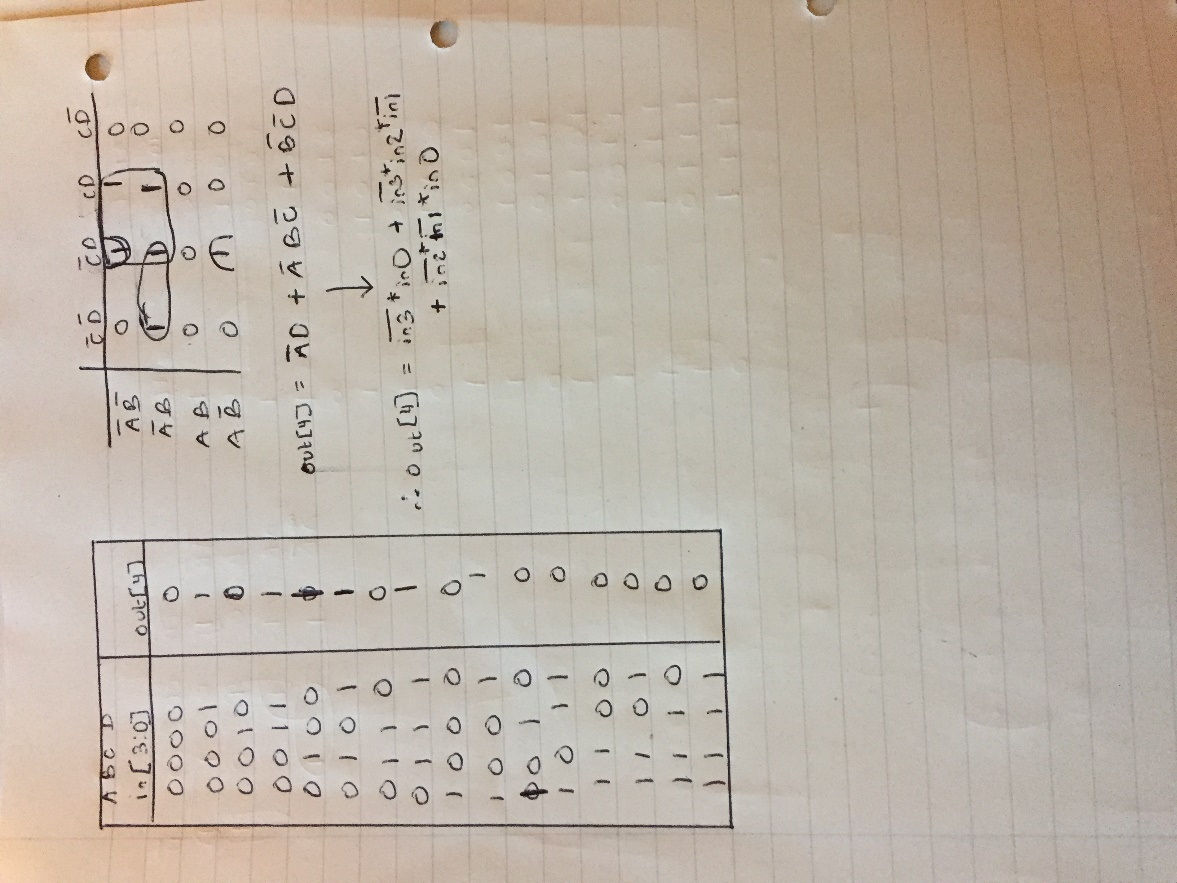 A B C D
in[3:0] out[4]
0000 0
0001 1
0010 0
0011 1
0100 1
0101 1
0110 0
0111 1
1000 0
1001 1
1010 0
1011 0
1100 0
1101 0
1110 0
1111 0
C̅D̅ C̅D CD CD̅
A̅B̅ 0 1 1 0
A̅B 1 1 1 0
AB 0 0 0 0
AB̅ 0 1 0 0
out[4] = A̅D + A̅BC̅ + B̅C̅D
↓
∴ out[4] = i̅n̅3̅*in0 + i̅n̅3̅*in2*i̅n̅1̅
+ i̅n̅2̅*i̅n̅1̅*in0